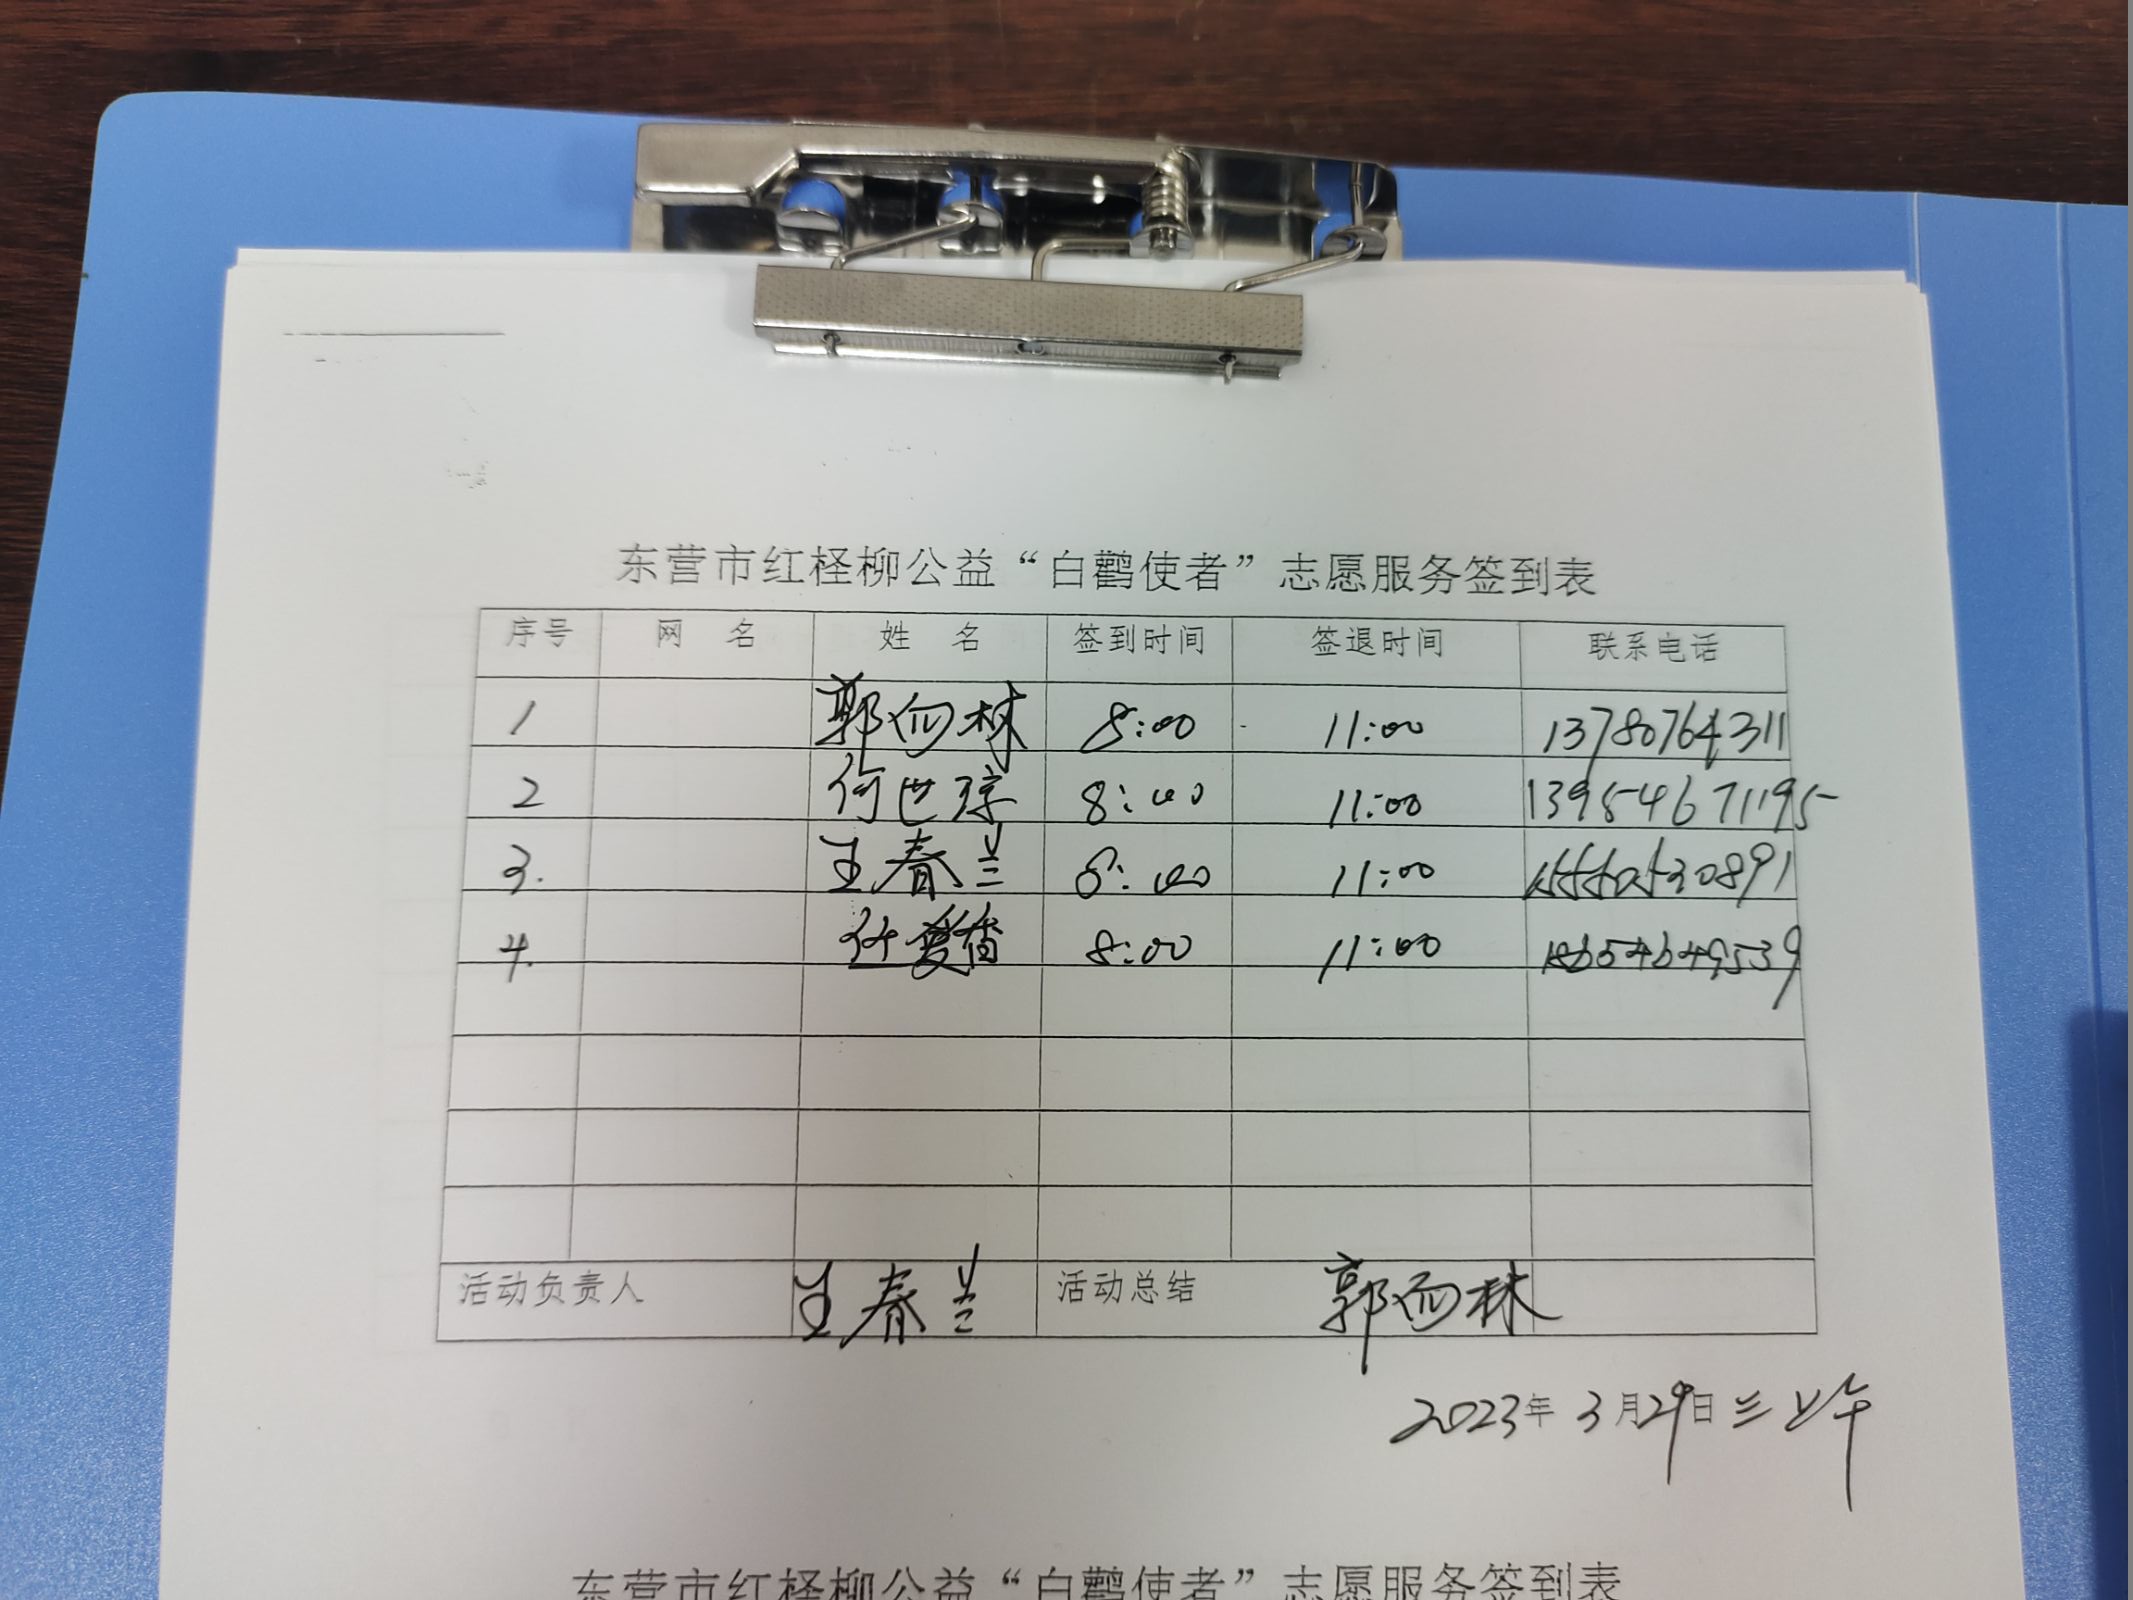 东营市红柽柳公益“白鹳使者”志愿服务签到表
序号 网 名 姓 名 签到时间 签退时间 联系电话
1 郭向林 8:00 11:00 13780764311
2 何世 8:00 11:00 13954671195
3. 王春兰 8:00 11:00
4. 任爱香 8:00 11:00
活动负责人 王春兰 活动总结 郭向林
2023年3月29日 三上午
东营市红柽柳公益“白鹳使者”志愿服务签到表